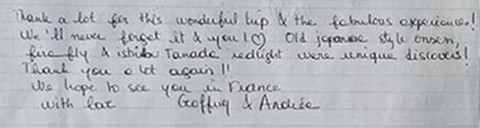 Thank a lot for this wonderful trip & the fabulous experiences!
We'll never forget it & you! ♡ Old japanese style onsen,
fire fly & ishibu Tanada redlight were unique discovers!
Thank you a lot again!!
We hope to see you in France
with love Geoffroy & Andrée